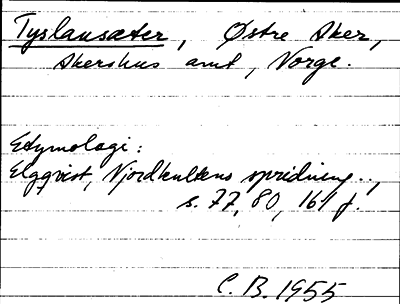 Tyslansæter, Østre Aker,
Akershus amt, Norge.
Etymologi:
Elgqvist, Njordkultens spridning..,
s. 77, 80, 161 f.
C. B. 1955